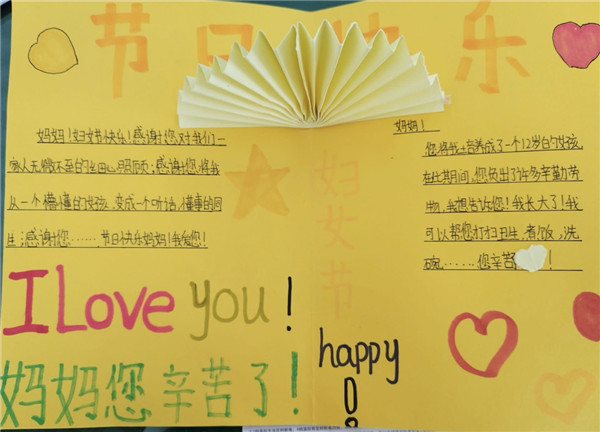 节日快乐
妈妈！妇女节快乐！感谢您对我们一
家人无微不至的关心照顾；感谢您将我
从一个懵懂的女孩，变成一个听话，懂事的同
生；感谢您……节日快乐妈妈！我爱您！
I Love you!
妈妈您辛苦了！
妇女节
happy!
妈妈！
您将我培养成了一个12岁的女孩，
在此期间，您负出了许多辛勤劳
我想告诉您！我长大了！我
可以帮您打扫卫生，煮饭，洗
碗……您辛苦！